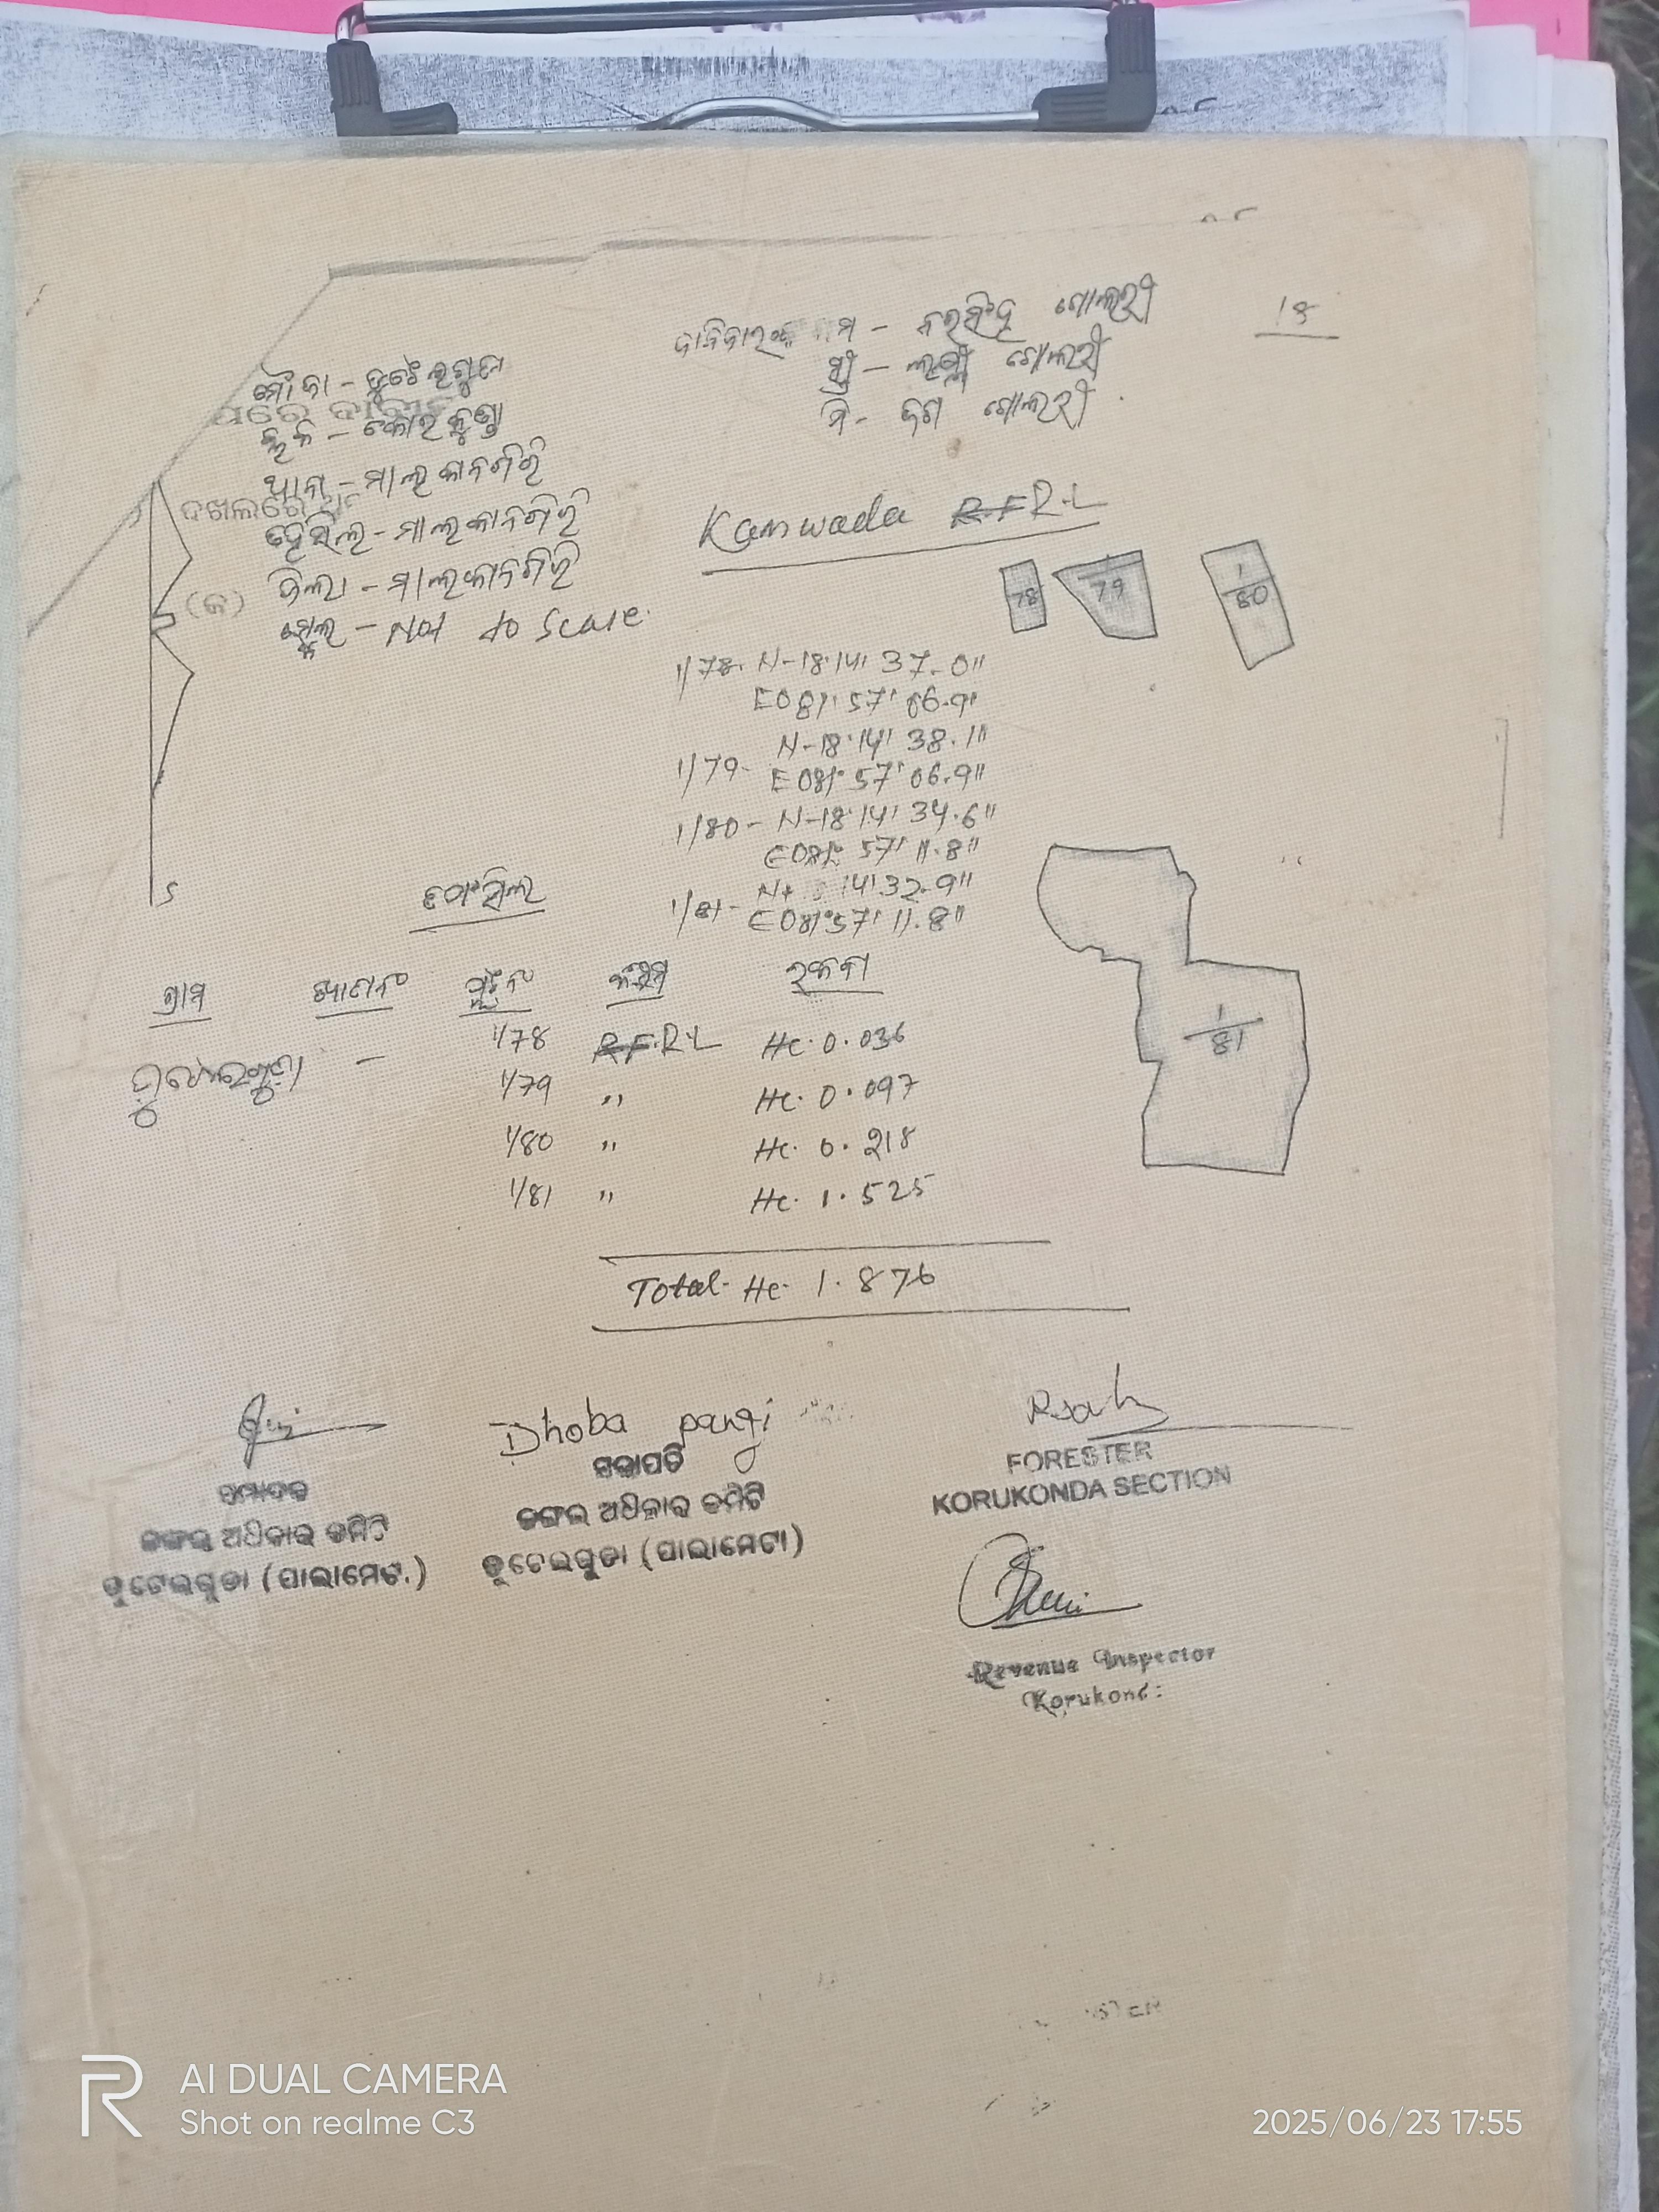 18
ଦାବିଦାରଙ୍କ ନାମ - ନରସିଂହ ଗୋଲରୀ
ସ୍ତ୍ରୀ - ଲକ୍ଷ୍ମୀ ଗୋଲରୀ
ପି - ଜଗ ଗୋଲରୀ
ମୌଜା - ଡୁଟେଇଗୁଡା
ବ୍ଲକ - କୋରକୁଣ୍ଡା
ଥାନା - ମାଲକାନଗିରି
ତହସିଲ - ମାଲକାନଗିରି
ଜିଲା - ମାଲକାନଗିରି
ସ୍କେଲ - Not to Scale.
ଦଖଲରେ
(କ)
Kamwada R.F R.L
78
1/79
1/80
1/78. N-18°14' 37.0"
E081° 57' 06.9"
1/79- N-18°14' 38.1"
E081° 57' 06.9"
1/80- N-18°14' 34.6"
E081° 57' 11.8"
1/81- 14' 32.9"
E081° 57' 11.8"
S
ତଫସିଲ
ଗ୍ରାମ ଖାତା ନଂ ପ୍ଲଟ ନଂ କିସମ ରକବା
ଡୁଟେଇଗୁଡା - 1/78 R.F.R.L Hc. 0.036
1/79 " Hc. 0.097
1/80 " Hc. 0.218
1/81 " Hc. 1.525
1/81
Total- Hc- 1.876
Dhoba pangi
ସମ୍ପାଦକ
ଜଙ୍ଗଲ ଅଧିକାର କମିଟି
ଡୁଟେଇଗୁଡା (ପାଲାମେଟା)
ସଭାପତି
ଜଙ୍ଗଲ ଅଧିକାର କମିଟି
ଡୁଟେଇଗୁଡା (ପାଲାମେଟା)
FORESTER
KORUKONDA SECTION
Revenue Inspector
AI DUAL CAMERA
Shot on realme C3
2025/06/23 17:55